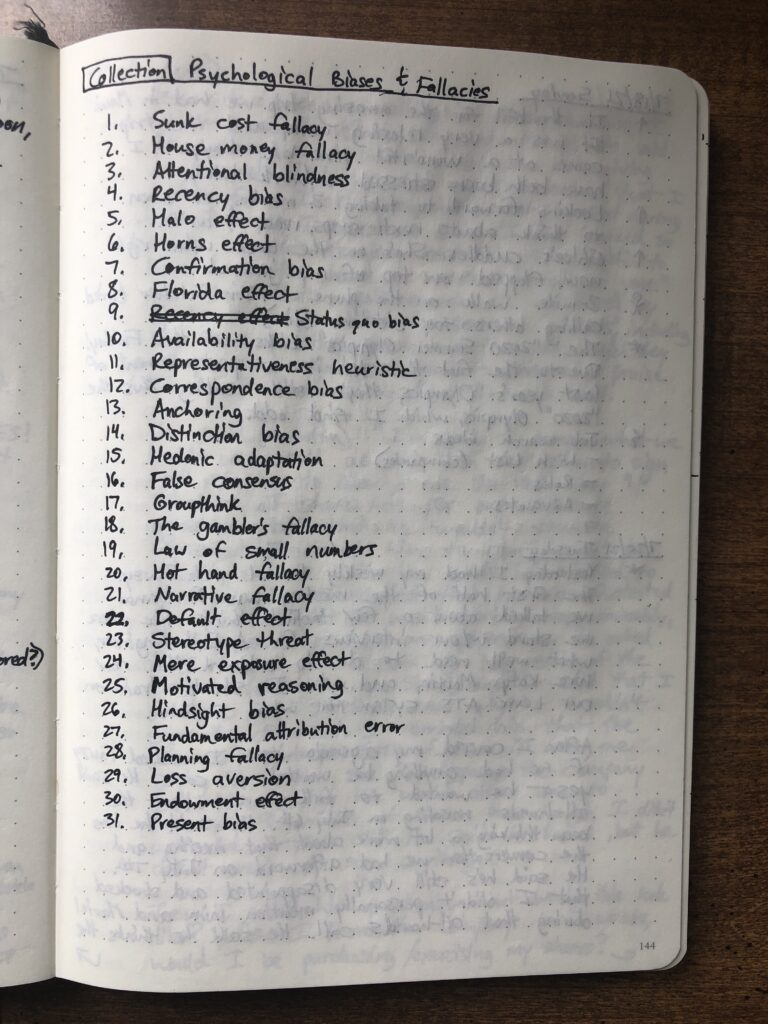 Collection Psychological Biases & Fallacies
1. Sunk cost fallacy
2. House money fallacy
3. Attentional blindness
4. Recency bias
5. Halo effect
6. Horns effect
7. Confirmation bias
8. Florida effect
9. Recency effect Status quo bias
10. Availability bias
11. Representativeness heuristic
12. Correspondence bias
13. Anchoring
14. Distinction bias
15. Hedonic adaptation
16. False consensus
17. Groupthink
18. The gambler's fallacy
19. Law of small numbers
20. Hot hand fallacy
21. Narrative fallacy
22. Default effect
23. Stereotype threat
24. Mere exposure effect
25. Motivated reasoning
26. Hindsight bias
27. Fundamental attribution error
28. Planning fallacy
29. Loss aversion
30. Endowment effect
31. Present bias
144